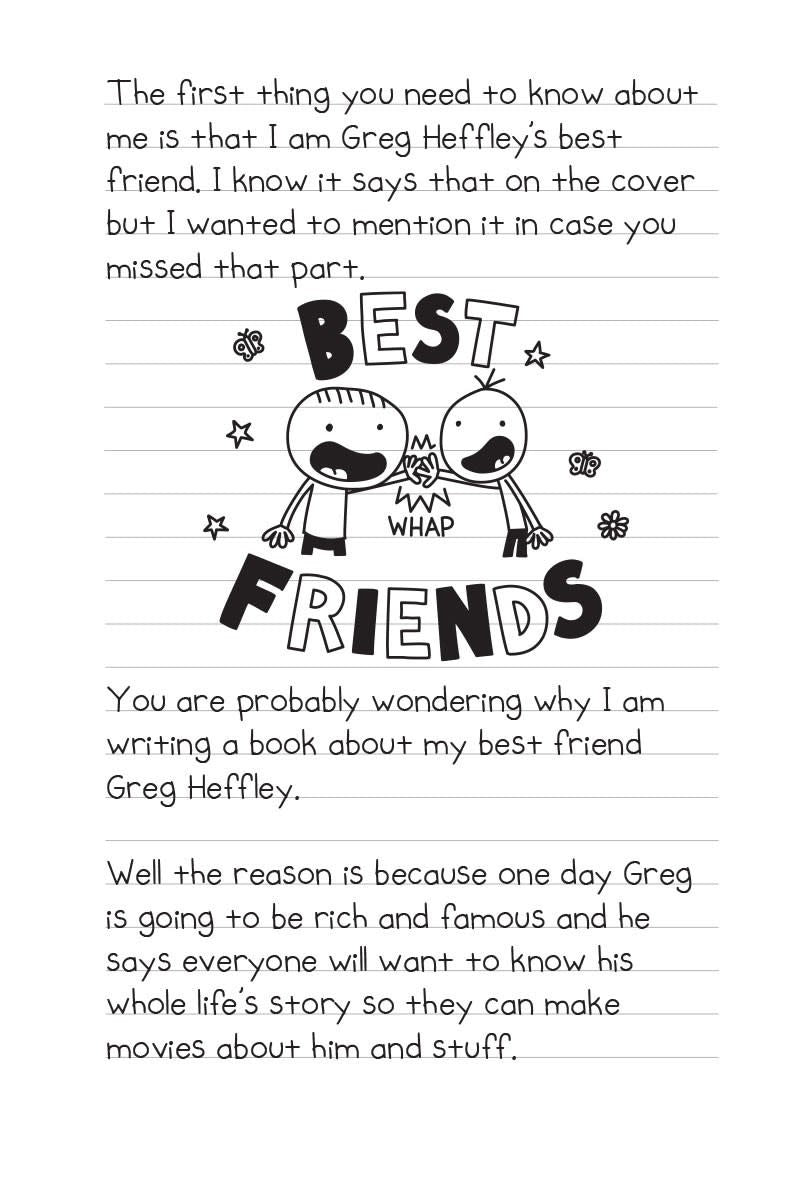 The first thing you need to know about
me is that I am Greg Heffley's best
friend. I know it says that on the cover
but I wanted to mention it in case you
missed that part.
BEST
WHAP
FRIENDS
You are probably wondering why I am
writing a book about my best friend
Greg Heffley.
Well the reason is because one day Greg
is going to be rich and famous and he
says everyone will want to know his
whole life's story so they can make
movies about him and stuff.